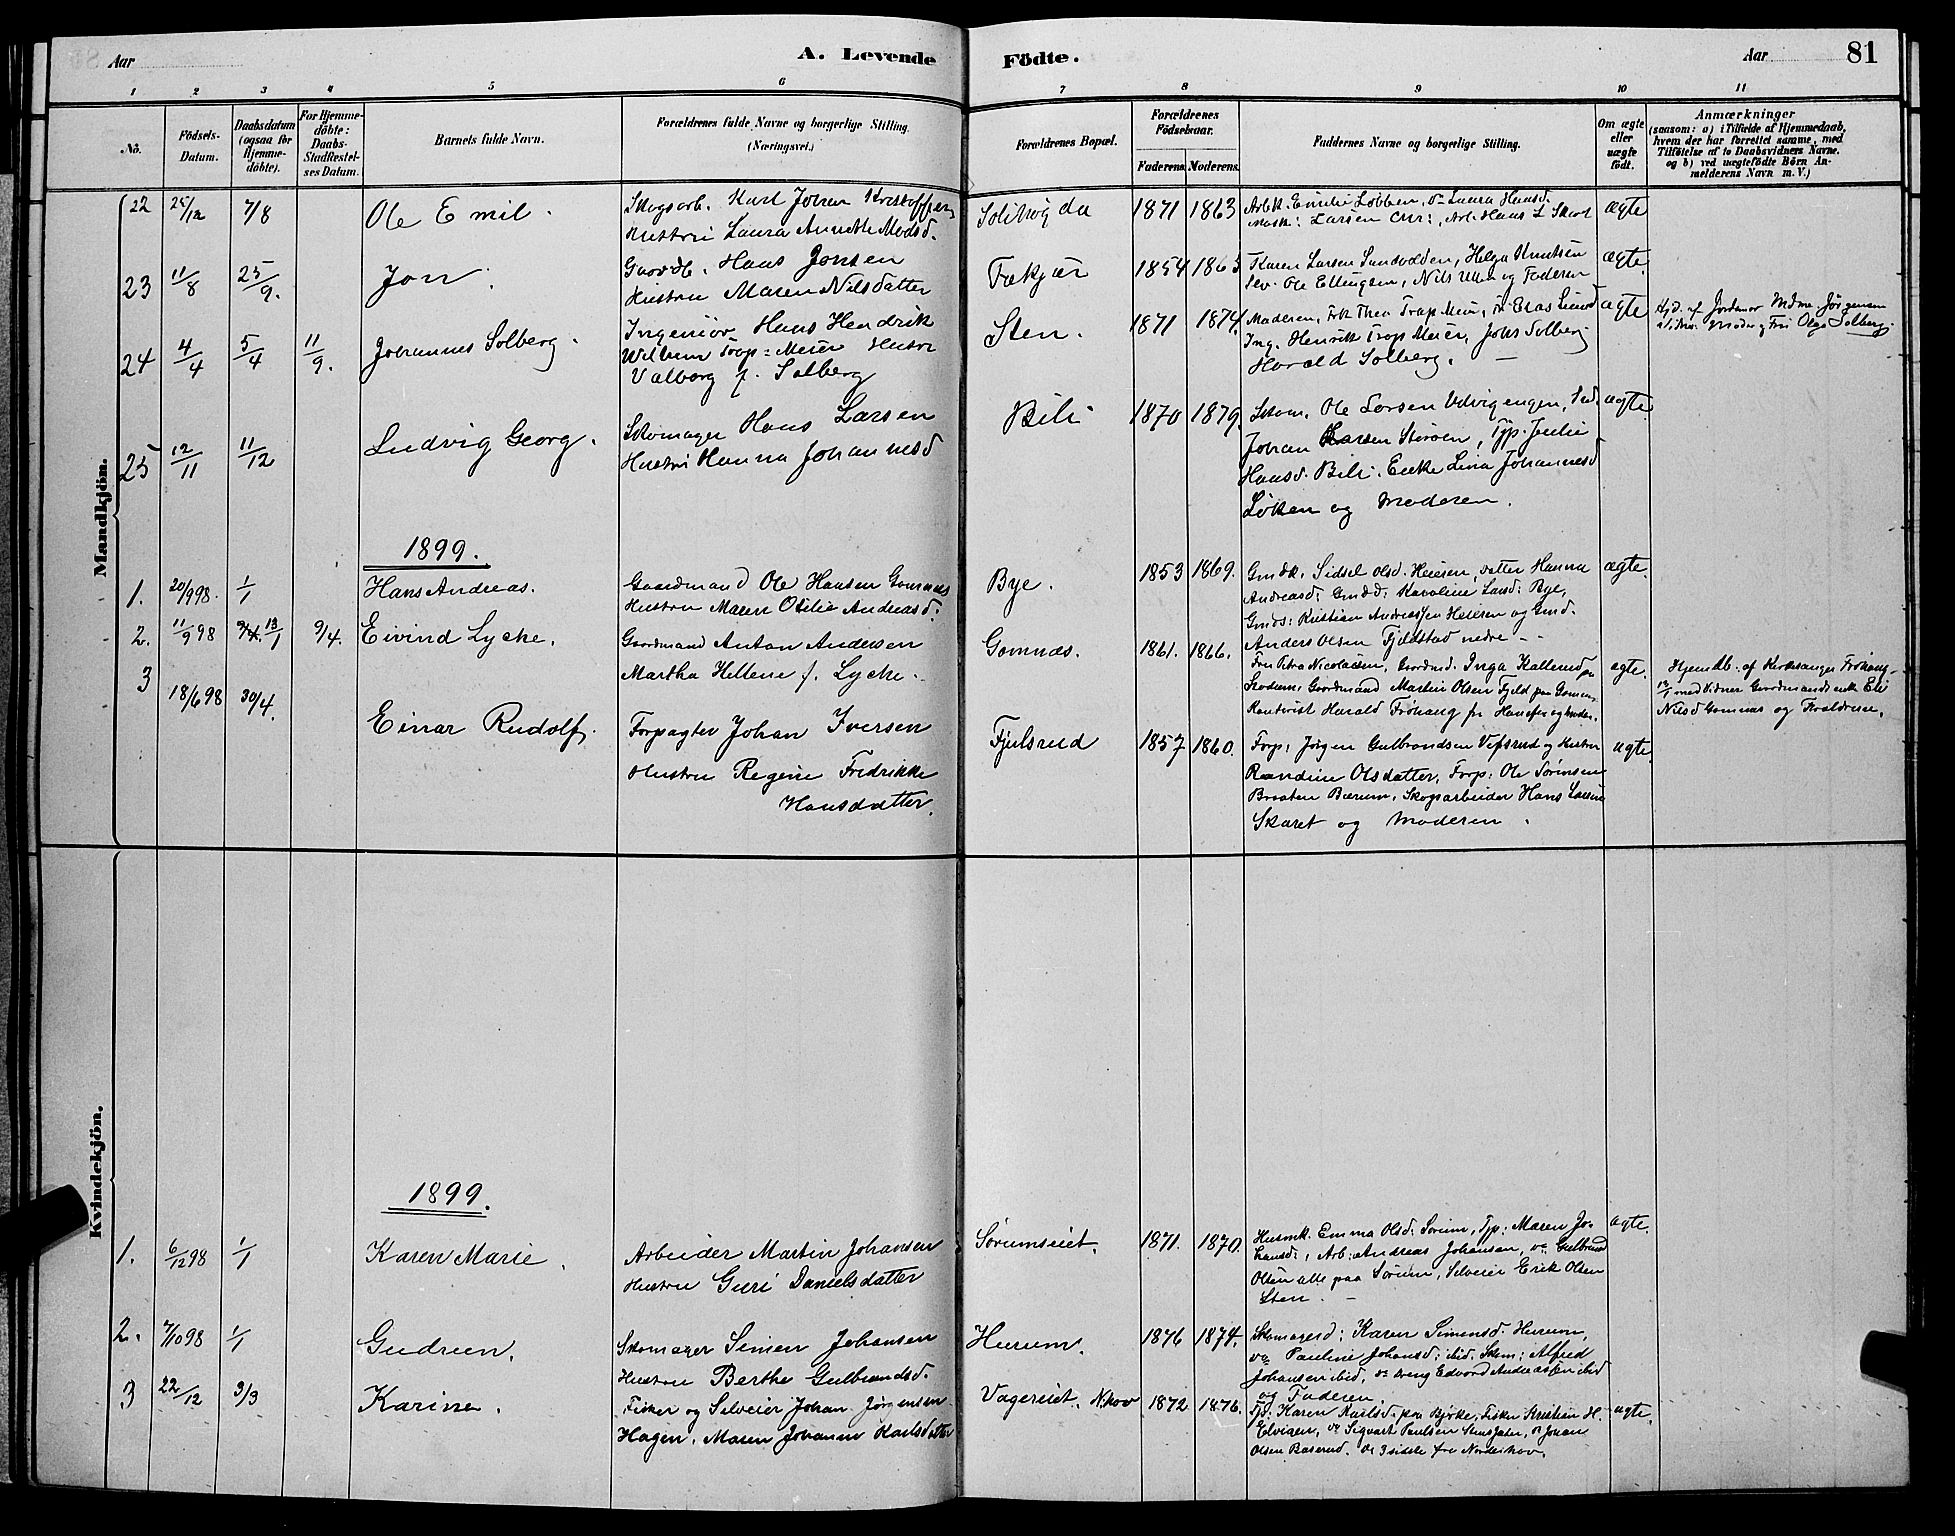 Aar
A. Levende
Födte.
Aar
81
1 2 3 4 5 6 7 8 9 10 11
No.
Födsels-
Datum.
Daabsdatum
(ogsaa for
Hjemme-
döbte).
For Hjemme-
döbte:
Daabs-
Stadfæstel-
ses Datum.
Barnets fulde Navn.
Forældrenes fulde Navne og borgerlige Stilling.
(Næringsvei.)
Forældrenes Bopæl.
Forældrenes
Födselsaar.
Faderens. Moderens.
Faddernes Navne og borgerlige Stilling.
Om ægte
eller
uægte
födt.
Anmærkninger
(saasom: a) i Tilfælde af Hjemmedaab,
hvem der har forrettet samme, med
Tilföielse af to Daabsvidners Navne.
og b) ved uægtefödte Börn An-
melderens Navn m. V.)
Mandkjön.
22 25/12 7/8 Ole Emil.
Skogsarb. Karl Johan Kristoffersen
Hustru Laura Annette Madsd.
Solihögda 1871 1863
Arbk. Emilie Löbben, Laura Hansd.
Larsen, Arb. Hans L Skot
ægte
23 11/8 25/9. Jon.
Gaardb. Hans Jonsen
Hustru Maren Nilsdatter
Fækjær 1854 1863
Karen Larsen Sundvolden, Helga Knutsen
Sev. Ole Ellingsen, Nils Ullern og Faderen
ægte.
24 4/4 5/4 11/9. Johannes Solberg.
Ingeniör Hans Hendrik
Wilhelm Trap=Meier Hustru
Valborg f. Solberg
Sten. 1871 1874.
Moderen, Frk Thea Trap Meier, Fr. Elas Lund
Ing. Henrik Trap Meier, Johs Solberg
Harald Solberg. —
ægte
Hjd. af Jordmor Mdme. Jörgensen
Moder og Fru Olga Solberg.
25 12/11 11/12 Ludvig Georg.
Skomager Hans Larsen
Hustru Hanna Johannesd
Bili 1870 1879.
Skom. Ole Larsen Udvigengen, Sed.
Johan Larsen Steröen, Typ. Julie
Hansd. Bili. Enke Lina Johannesd
Löken og Moderen.
ægte.
1899.
1. 20/9 98. 1/1 Hans Andreas.
Gaardmand Ole Hansen Gomnæs
Hustru Maren Otilie Andreasd.
Bye. 1853 1869.
Gmdk. Sidsel Olsd. Heiesen, datter Hanna
Andreasd. Gmdd. Karoline Larsd. Bye,
Gmds: Kristian Andreassen Heiesen og Gmd.
Anders Olsen Fjeldstad nedre - -
ægte.
2. 11/9 98 13/1 9/4. Eivind Lycke.
Gaardmand Anton Andersen
Martha Hellene f. Lycke.
Gomnæs. 1861. 1866.
Fru Petra Nicolaisen, Gaardmd. Inga Kallerud paa
Skoderen, Gaardmand Martin Olsen Fjeld paa Gomnæs,
Kontorist Harald Fröhaug fra Hönefos og Moder.
ægte.
Hjemdb. af Kirkesanger Fröhaug
13/1 med Vidner Gaardmands enke Eli
Nilsd Gomnæs og Forældrene.
3 18/6 98 30/4. Einar Rudolf.
Forpagter Johan Iversen
Hustru Regine Fredrikke
Hansdatter.
Fjulsrud 1857 1860.
Forp: Jörgen Gulbrandsen Vefsrud og Hustru
Randine Olsdatter, Forp: Ole Sörensen
Braaten Bærum, Skogsarbeider Hans Larsen
Skaret og Moderen.
ægte.
Kvindekjön.
1899.
1. 6/12 98 1/1 Karen Marie.
Arbeider Martin Johansen
Hustru Guri Danielsdatter
Sörumseiet. 1871. 1870.
Husmk. Emma Olsd. Sörum, Tjp: Maren Jo-
hansd., Arb: Andreas Johansen, Gulbrand
Olsen alle paa Sörum, Selveier Erik Olsen
Sten. —
ægte.
2. 7/10 98 1/1 Gudrun.
Skomager Simen Johansen
Hustru Berthe Gulbrandsd.
Hurum. 1876 1874.
Skomagerd; Karen Simensd. Hurum,
Pauline Johansd; ibid. Skom: Alfred
Johansen ibid, Edvard Andreassen ibid
og Faderen.
3 22/12 3/3 Karine.
Fisker og Selveier Johan Jörgensen
Hagen. Maren Johanne Karlsdatter
Vageseiet. N.hov 1872 1876.
Tp: Karen Karlsd. paa Bjerke, Fisker Kristian H.
Elvigen, Sigvart Paulsen, Johan
Olsen Baserud. De 3 sidste fra Norderhov.
ægte.